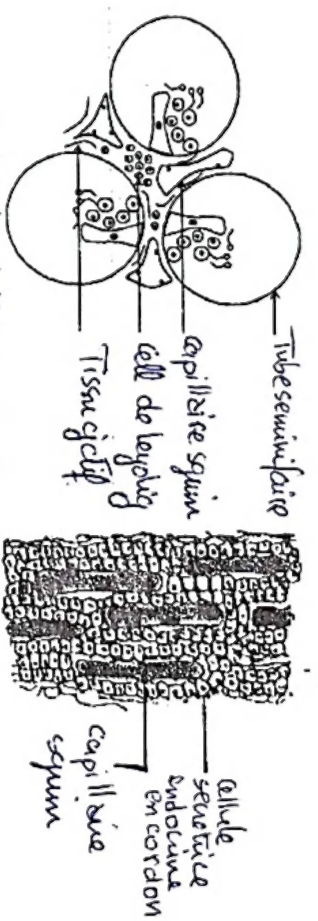 Tube seminifaire
capillaire sguin
Cell de leydig
Tissu cjctif
cellule
sécretrice
endocrine
en cordon
capillaire
sguin